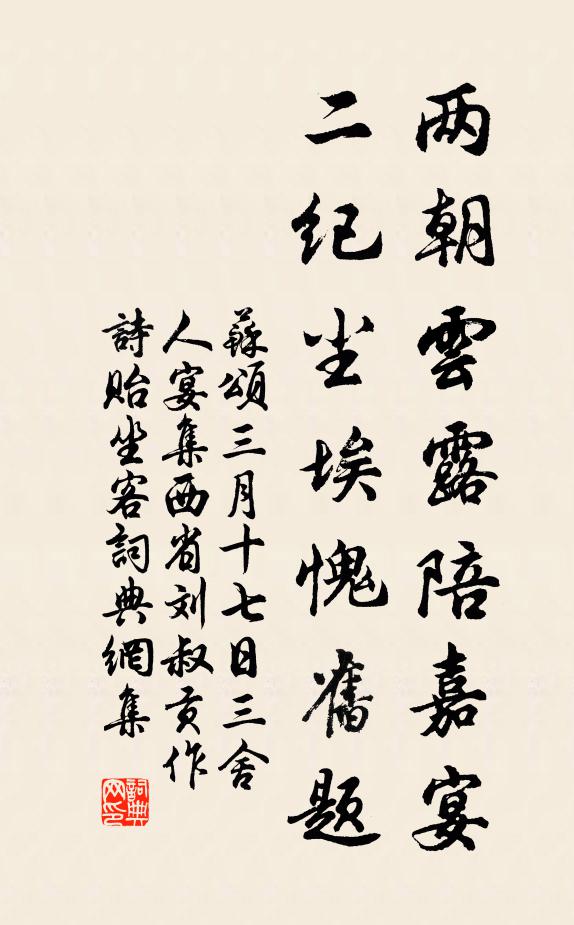 两朝雲露陪嘉宴
二纪尘埃愧舊题
蘇頌三月十七日三舍
人宴集西省刘叔贡作
詩貽坐客詞典網集
詞典网印